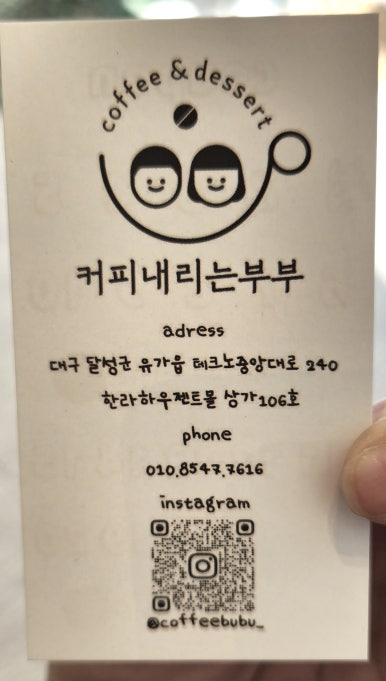 coffee & dessert
커피내리는부부
adress
대구 달성군 유가읍 테크노중앙대로 240
한라하우젠트몰 상가106호
phone
010.8547.7616
instagram
@coffeebubu_